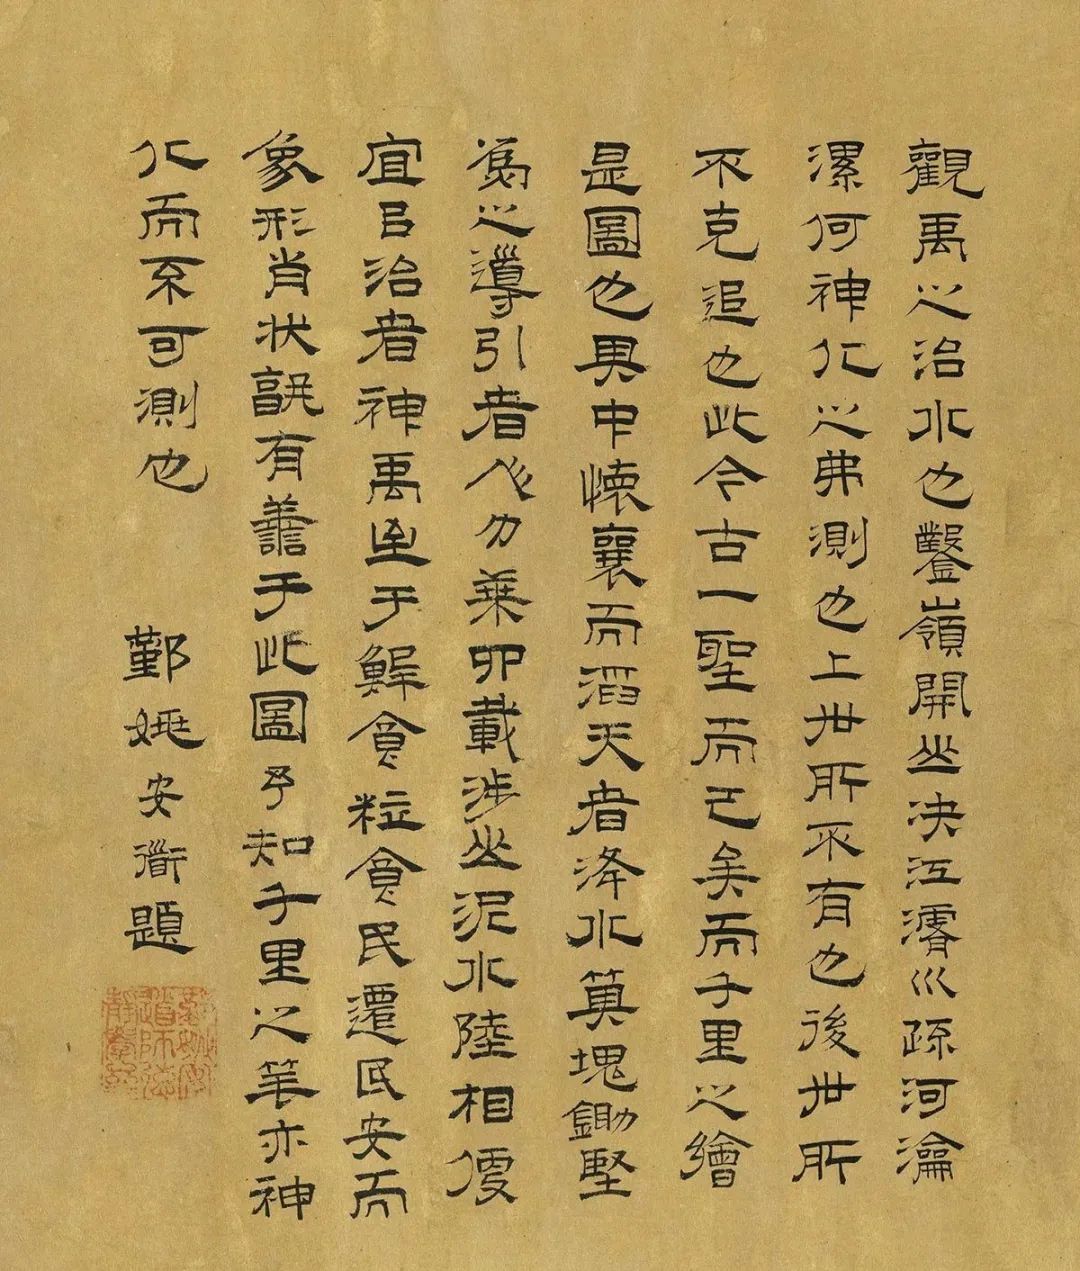 觀禹之治水也鑿嶺開山决江濬巛疏河瀹
漯何神化之弗測也上世所不有也後世所
不克追也此今古一聖而已矣而千里之繪
是圖也其中懐襄而滔天者洚水箕塊鋤堅
為之導引者人力乗四載涉山泥水陸相便
宜以治者神禹至于鮮食粒食民遷民安而
象形肖状有善于此圖乎知千里之筆亦神
化而不可測也
鄞姚安衟題